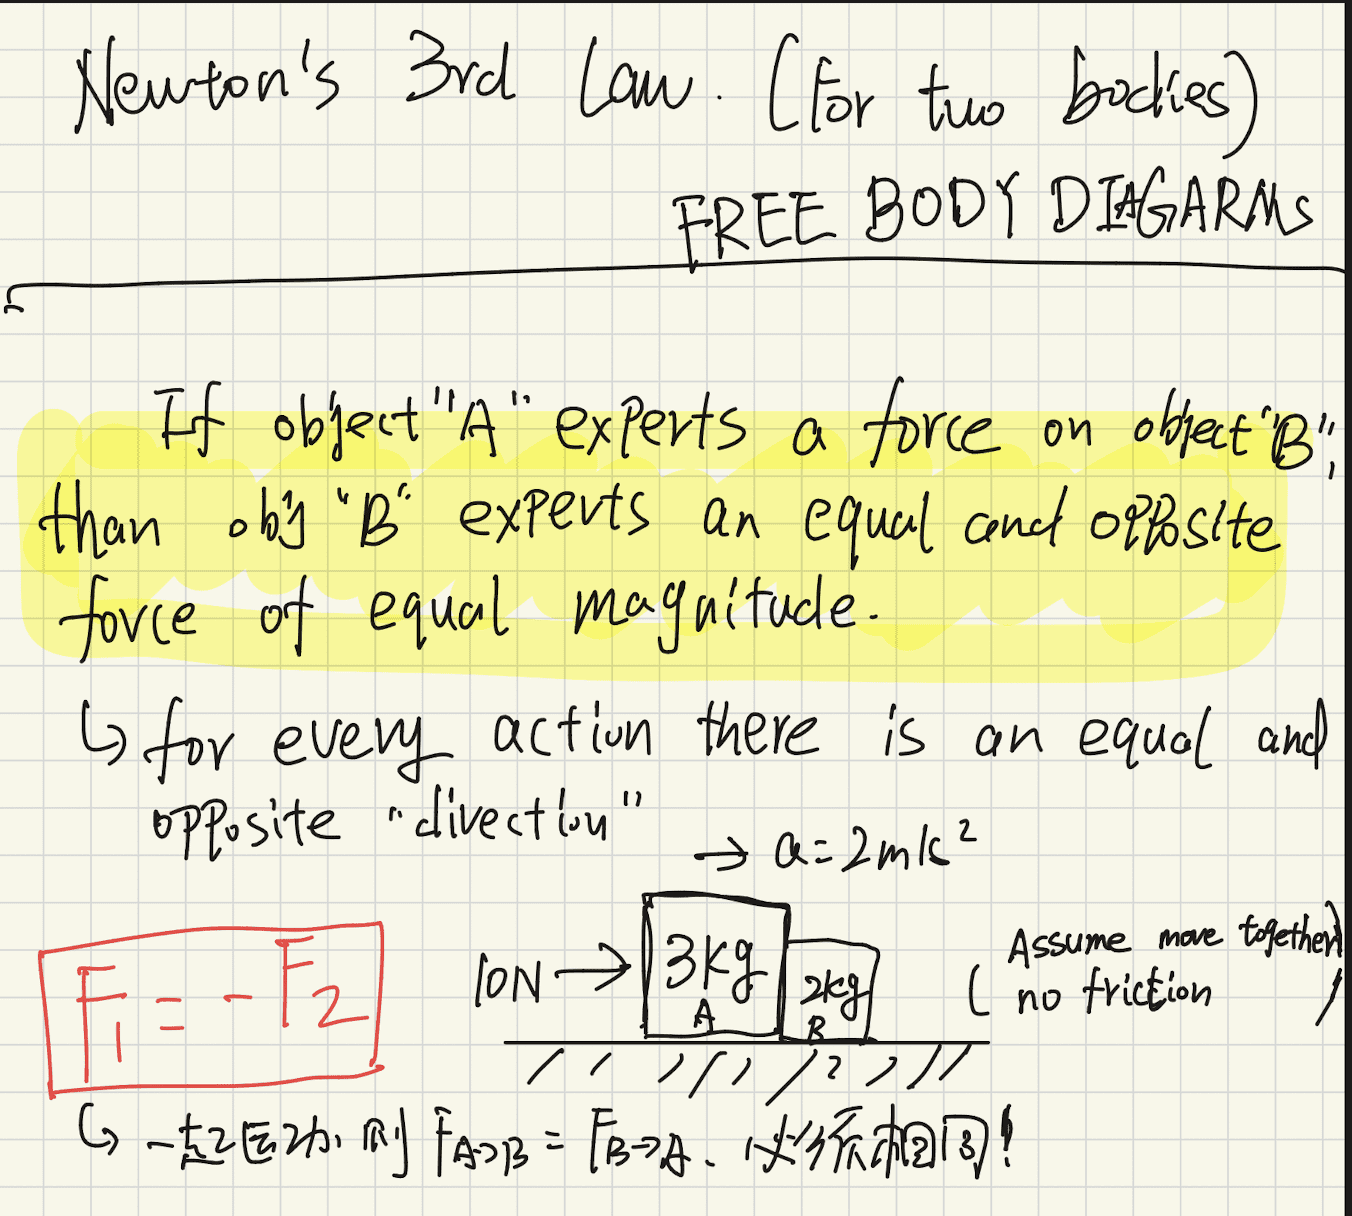 Newton's 3rd Law. (For two bodies)
FREE BODY DIAGARMs
If object "A" experts a force on object "B",
than obj "B" experts an equal and opposite
force of equal magnitude.
↳ for every action there is an equal and
opposite "direction"
→ a = 2m/s²
F1 = - F2
10N → 3kg A 2kg B
(Assume move together)
(no friction)
↳ 一起运动, 则 FA→B = FB→A. 必须相同!